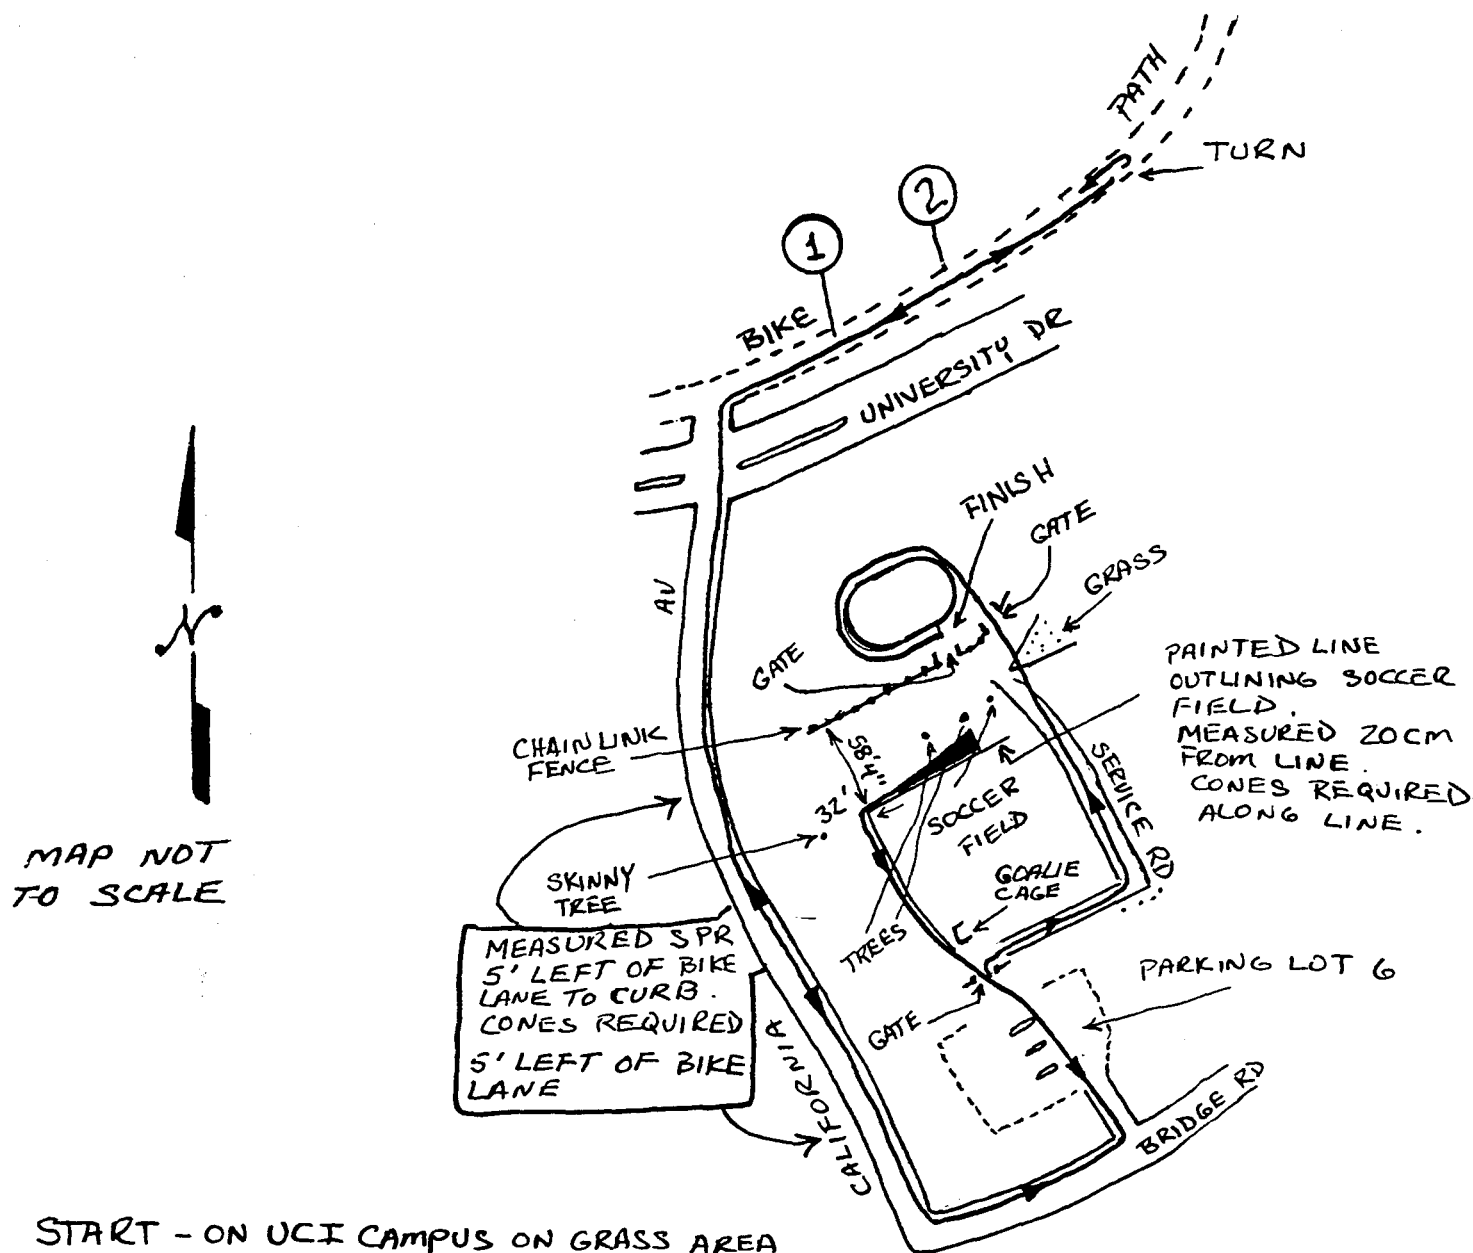 PATH
TURN
2
1
BIKE
UNIVERSITY DR
FINISH
GATE
GRASS
AV
N
GATE
PAINTED LINE
OUTLINING SOCCER
FIELD.
MEASURED 20CM
FROM LINE.
CONES REQUIRED
ALONG LINE.
CHAIN LINK
FENCE
58'4"
32'
SOCCER
FIELD
SERVICE RD
MAP NOT
TO SCALE
SKINNY
TREE
GOALIE
CAGE
TREES
MEASURED SPR
5' LEFT OF BIKE
LANE TO CURB.
CONES REQUIRED
5' LEFT OF BIKE
LANE
PARKING LOT 6
GATE
CALIFORNIA
BRIDGE RD
START - ON UCI CAMPUS ON GRASS AREA